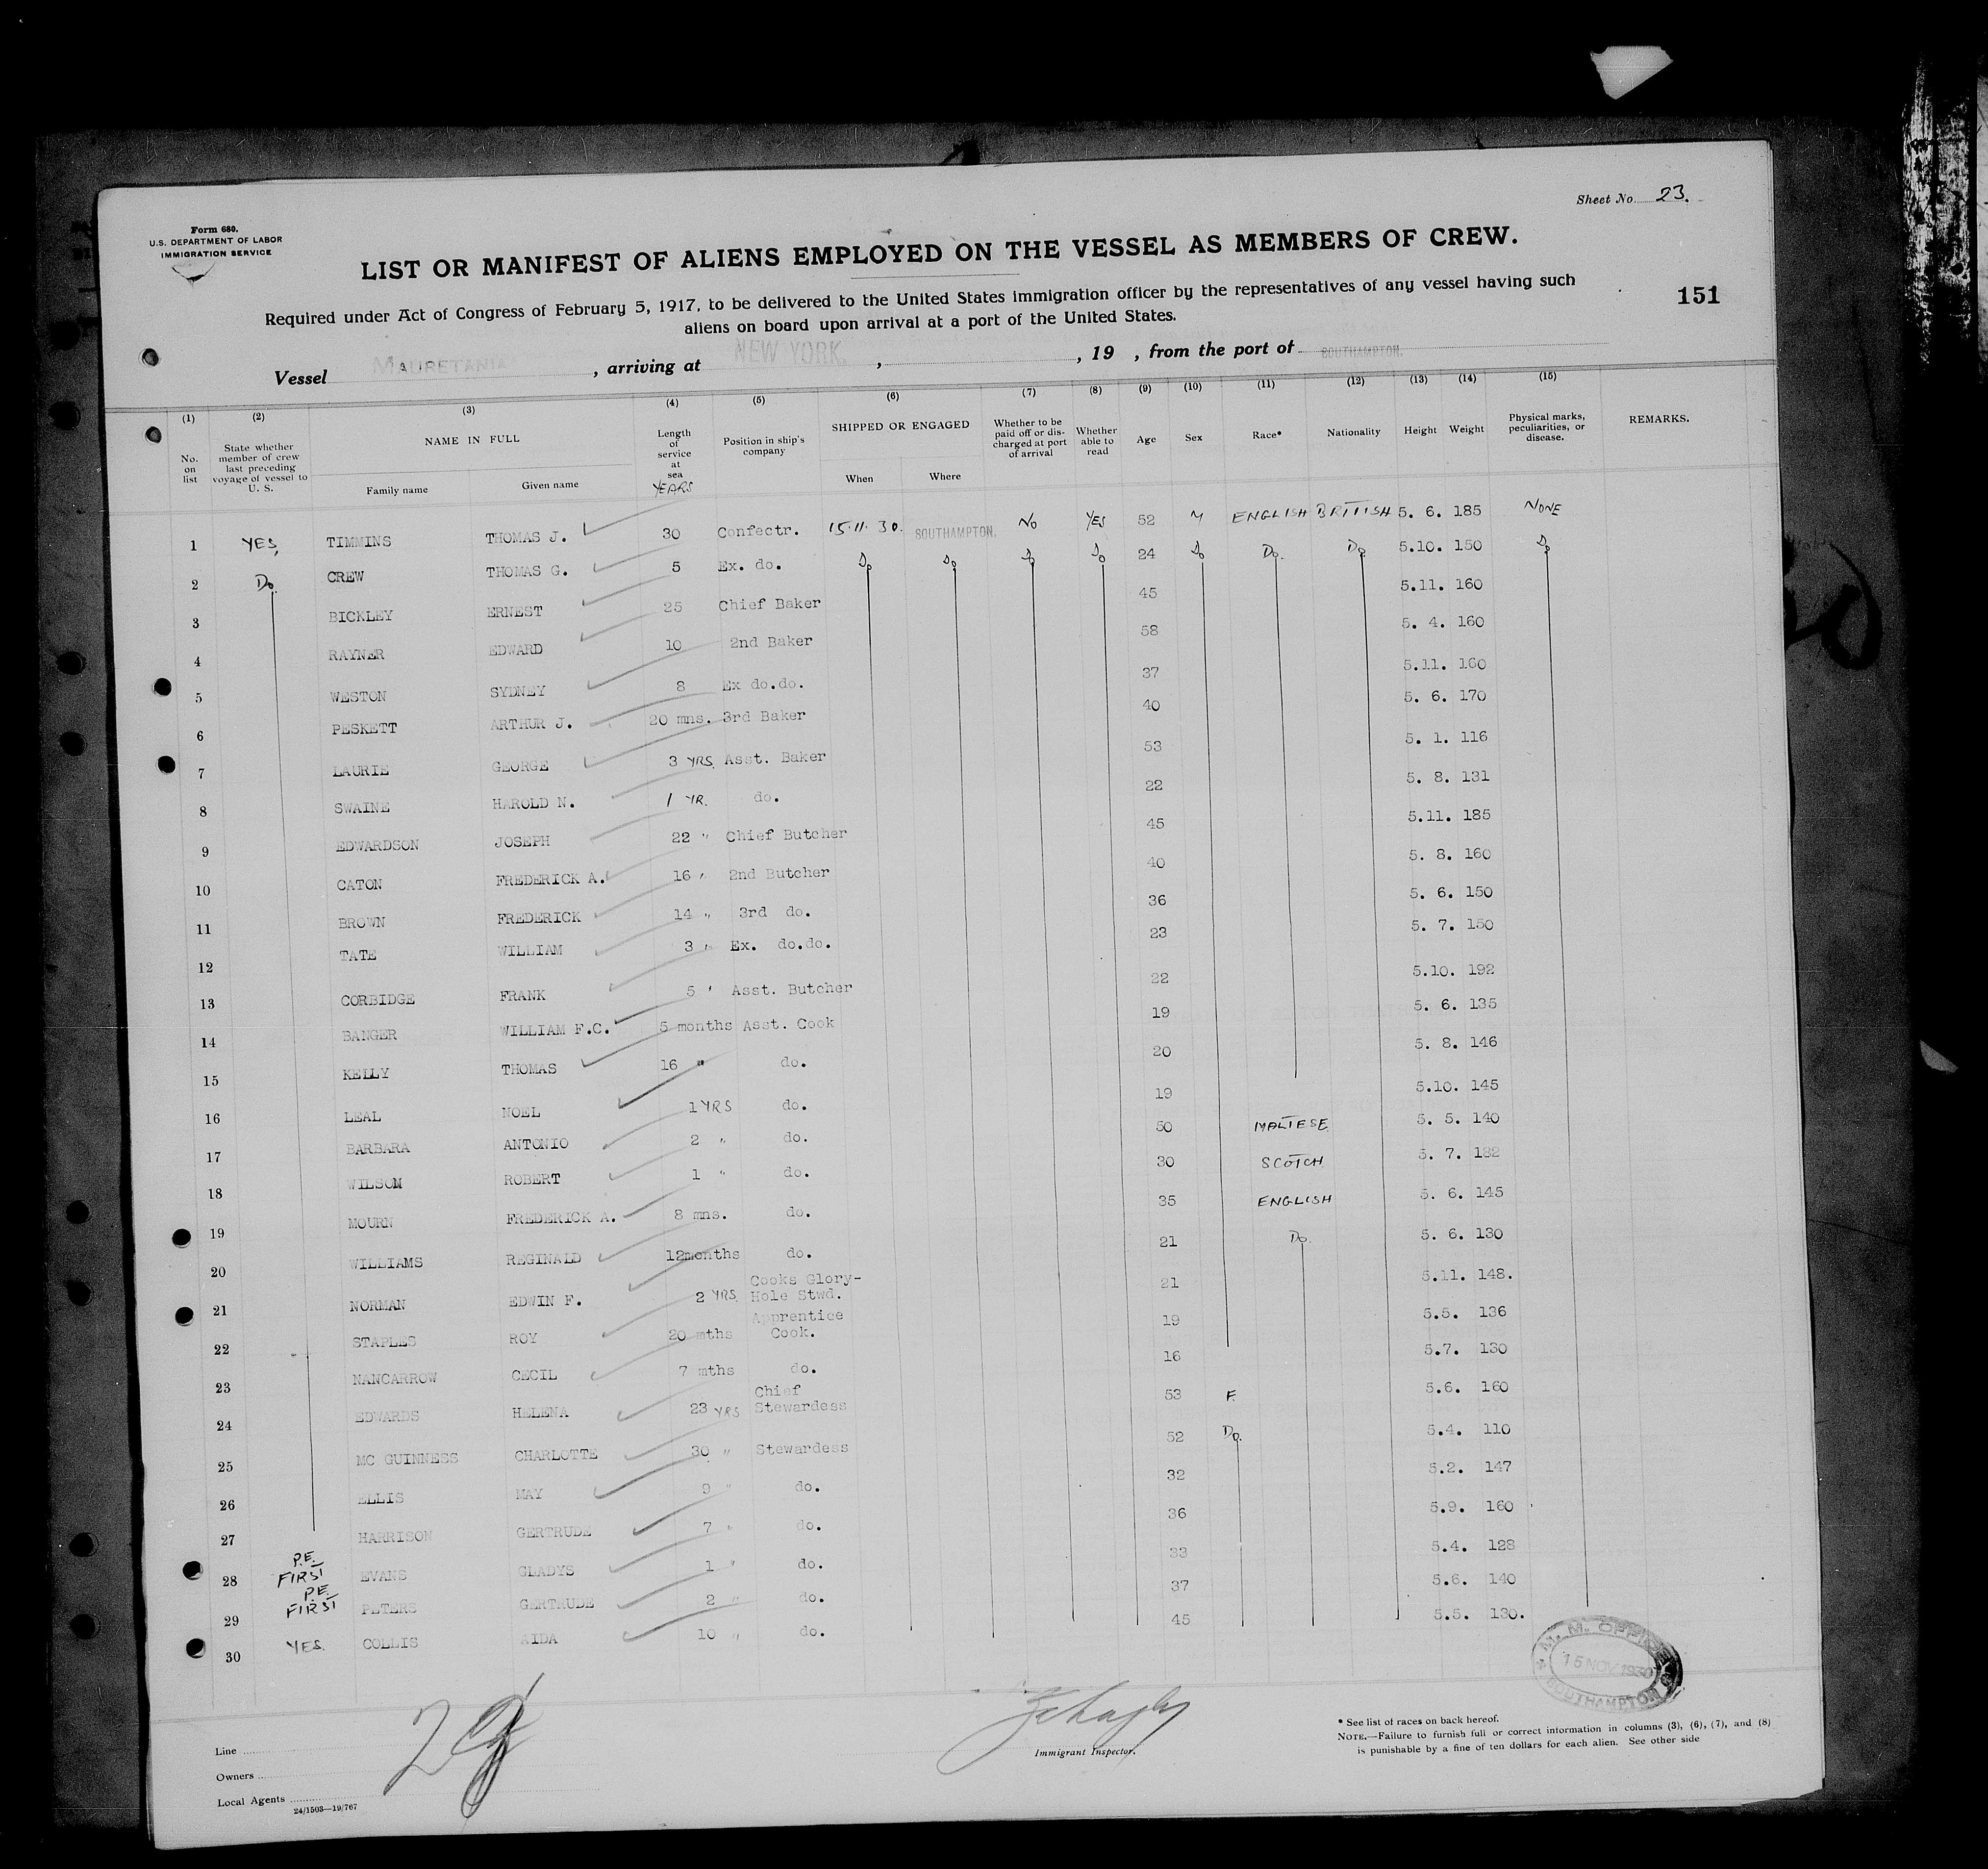 Sheet No. 23.
Form 680.
U.S. DEPARTMENT OF LABOR
IMMIGRATION SERVICE
LIST OR MANIFEST OF ALIENS EMPLOYED ON THE VESSEL AS MEMBERS OF CREW.
Required under Act of Congress of February 5, 1917, to be delivered to the United States immigration officer by the representatives of any vessel having such
aliens on board upon arrival at a port of the United States.
151
Vessel MAURETANIA, arriving at NEW YORK, , 19 , from the port of SOUTHAMPTON.
(1) (2) (3) (4) (5) (6) (7) (8) (9) (10) (11) (12) (13) (14) (15)
No. on list State whether member of crew last preceding voyage of vessel to U. S. NAME IN FULL Family name Given name Length of service at sea YEARS Position in ship's company SHIPPED OR ENGAGED When Where Whether to be paid off or discharged at port of arrival Whether able to read Age Sex Race* Nationality Height Weight Physical marks, peculiarities, or disease. REMARKS.
1 YES, TIMMINS THOMAS J. 30 Confectr. 15.11.30. SOUTHAMPTON. No YES 52 M ENGLISH BRITISH 5. 6. 185 NONE
2 Do. CREW THOMAS G. 5 Ex. do. Do Do Do Do 24 Do Do. Do 5.10. 150 Do
3 BICKLEY ERNEST 25 Chief Baker 45 5.11. 160
4 RAYNER EDWARD 10 2nd Baker 58 5. 4. 160
5 WESTON SYDNEY 8 Ex do.do. 37 5.11. 160
6 PESKETT ARTHUR J. 20 mns. 3rd Baker 40 5. 6. 170
7 LAURIE GEORGE 3 YRS. Asst. Baker 53 5. 1. 116
8 SWAINE HAROLD N. 1 YR. do. 22 5. 8. 131
9 EDWARDSON JOSEPH 22 " Chief Butcher 45 5.11. 185
10 CATON FREDERICK A. 16 " 2nd Butcher 40 5. 8. 160
11 BROWN FREDERICK 14 " 3rd do. 36 5. 6. 150
12 TATE WILLIAM 3 " Ex. do.do. 23 5. 7. 150
13 CORBIDGE FRANK 5 " Asst. Butcher 22 5.10. 192
14 BANGER WILLIAM F.C. 5 months Asst. Cook 19 5. 6. 135
15 KELLY THOMAS 16 " do. 20 5. 8. 146
16 LEAL NOEL 1 YRS do. 19 5.10. 145
17 BARBARA ANTONIO 2 " do. 50 MALTESE 5. 5. 140
18 WILSON ROBERT 1 " do. 30 SCOTCH 5. 7. 132
19 MOURN FREDERICK A. 8 mns. do. 35 ENGLISH 5. 6. 145
20 WILLIAMS REGINALD 12months do. 21 Do. 5. 6. 130
21 NORMAN EDWIN F. 2 YRS. Cooks Glory-Hole Stwd. 21 5.11. 148.
22 STAPLES ROY 20 mths Apprentice Cook. 19 5.5. 136
23 NANCARROW CECIL 7 mths do. 16 5.7. 130
24 EDWARDS HELENA 23 YRS Chief Stewardess 53 F. 5.6. 160
25 MC GUINNESS CHARLOTTE 30 " Stewardess 52 Do. 5.4. 110
26 ELLIS MAY 9 " do. 32 5.2. 147
27 HARRISON GERTRUDE 7 " do. 36 5.9. 160
28 P.E. FIRST EVANS GLADYS 1 " do. 33 5.4. 128
29 P.E. FIRST PETERS GERTRUDE 2 " do. 37 5.6. 140
30 YES. COLLIS AIDA 10 " do. 45 5.5. 130.
M. M. OFFICE
15 NOV 1930
SOUTHAMPTON
Line
Owners
Local Agents
24/1503—19/767
Immigrant Inspector.
* See list of races on back hereof.
NOTE.—Failure to furnish full or correct information in columns (3), (6), (7), and (8)
is punishable by a fine of ten dollars for each alien. See other side